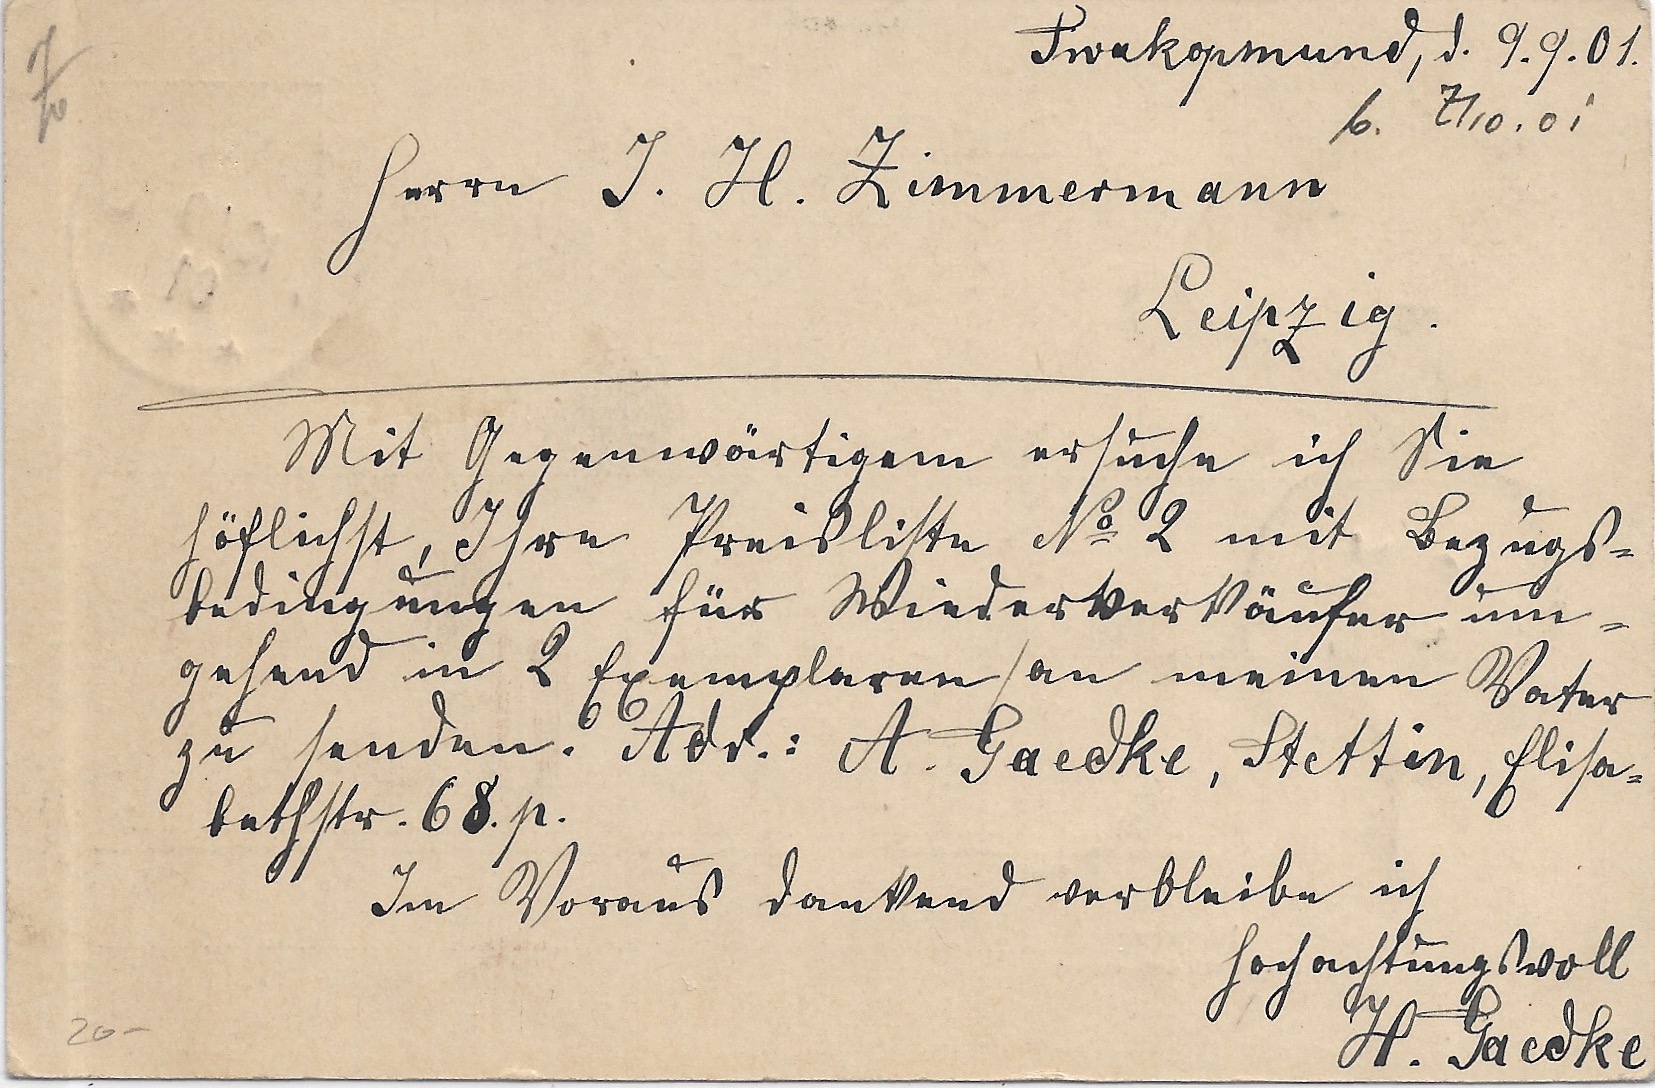 Swakopmund, d. 9.9.01.
b. 7/10.01
Herrn J. H. Zimmermann
Leipzig.
Mit Gegenwärtigem ersuche ich Sie
höflichst, Ihre Preisliste No 2 mit Bezugs=
bedingungen für Wiederverkäufer um=
gehend in 2 Exemplaren an meinen Vater
zu senden. Adr.: A. Gaedke, Stettin, Elisa=
bethstr. 68. p.
Im Voraus dankend verbleibe ich
hochachtungsvoll
H. Gaedke
20-